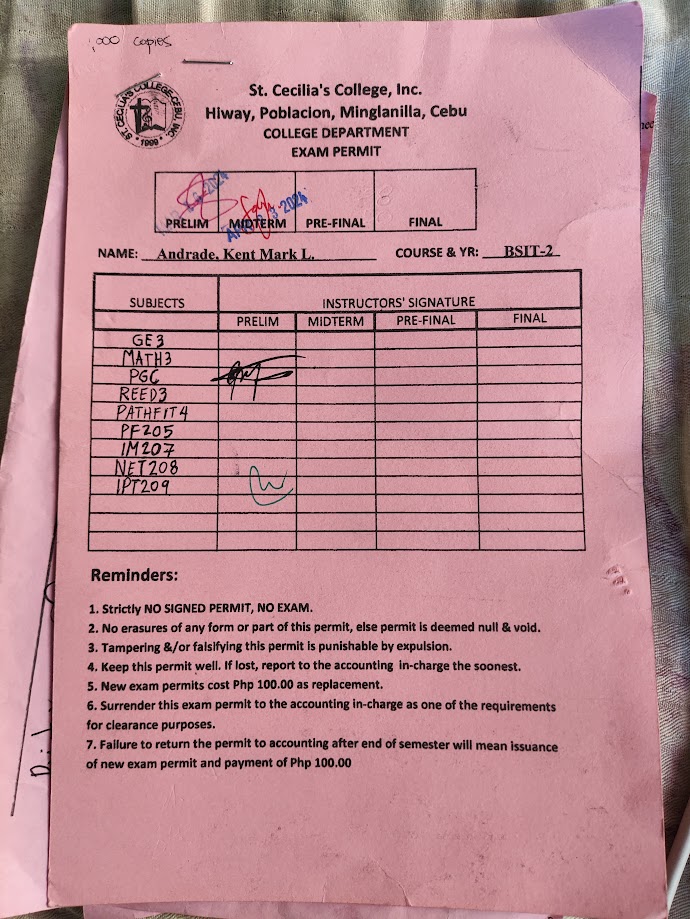 ,000 copies
St. Cecilia's College, Inc.
Hiway, Poblacion, Minglanilla, Cebu
COLLEGE DEPARTMENT
EXAM PERMIT
ST. CECILIA'S COLLEGE-CEBU, INC.
1999
2024
2024
PRELIM MIDTERM PRE-FINAL FINAL
NAME: Andrade, Kent Mark L. COURSE & YR: BSIT-2
SUBJECTS INSTRUCTORS' SIGNATURE
PRELIM MIDTERM PRE-FINAL FINAL
GE3
MATH3
PGC
REED3
PATHFIT4
PF205
IM207
NET208
IPT209
Reminders:
1. Strictly NO SIGNED PERMIT, NO EXAM.
2. No erasures of any form or part of this permit, else permit is deemed null & void.
3. Tampering &/or falsifying this permit is punishable by expulsion.
4. Keep this permit well. If lost, report to the accounting in-charge the soonest.
5. New exam permits cost Php 100.00 as replacement.
6. Surrender this exam permit to the accounting in-charge as one of the requirements
for clearance purposes.
7. Failure to return the permit to accounting after end of semester will mean issuance
of new exam permit and payment of Php 100.00